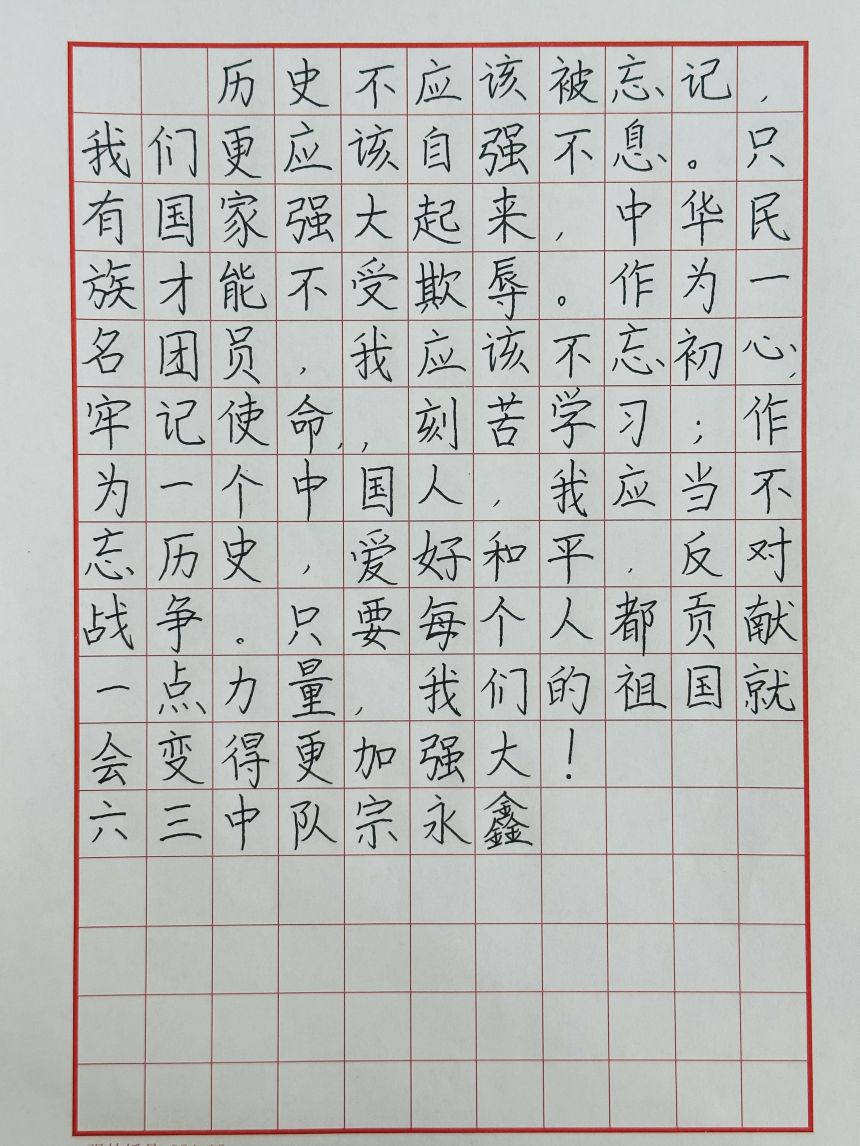 历史不应该被忘记，
我们更应该自强不息。只
有国家强大起来，中华民
族才能不受欺辱。作为一
名团员，我应该不忘初心，
牢记使命，，刻苦学习；作
为一个中国人，我应当不
忘历史，爱好和平，反对
战争。只要每个人都贡献
一点力量，我们的祖国就
会变得更加强大！
六三中队宗永鑫